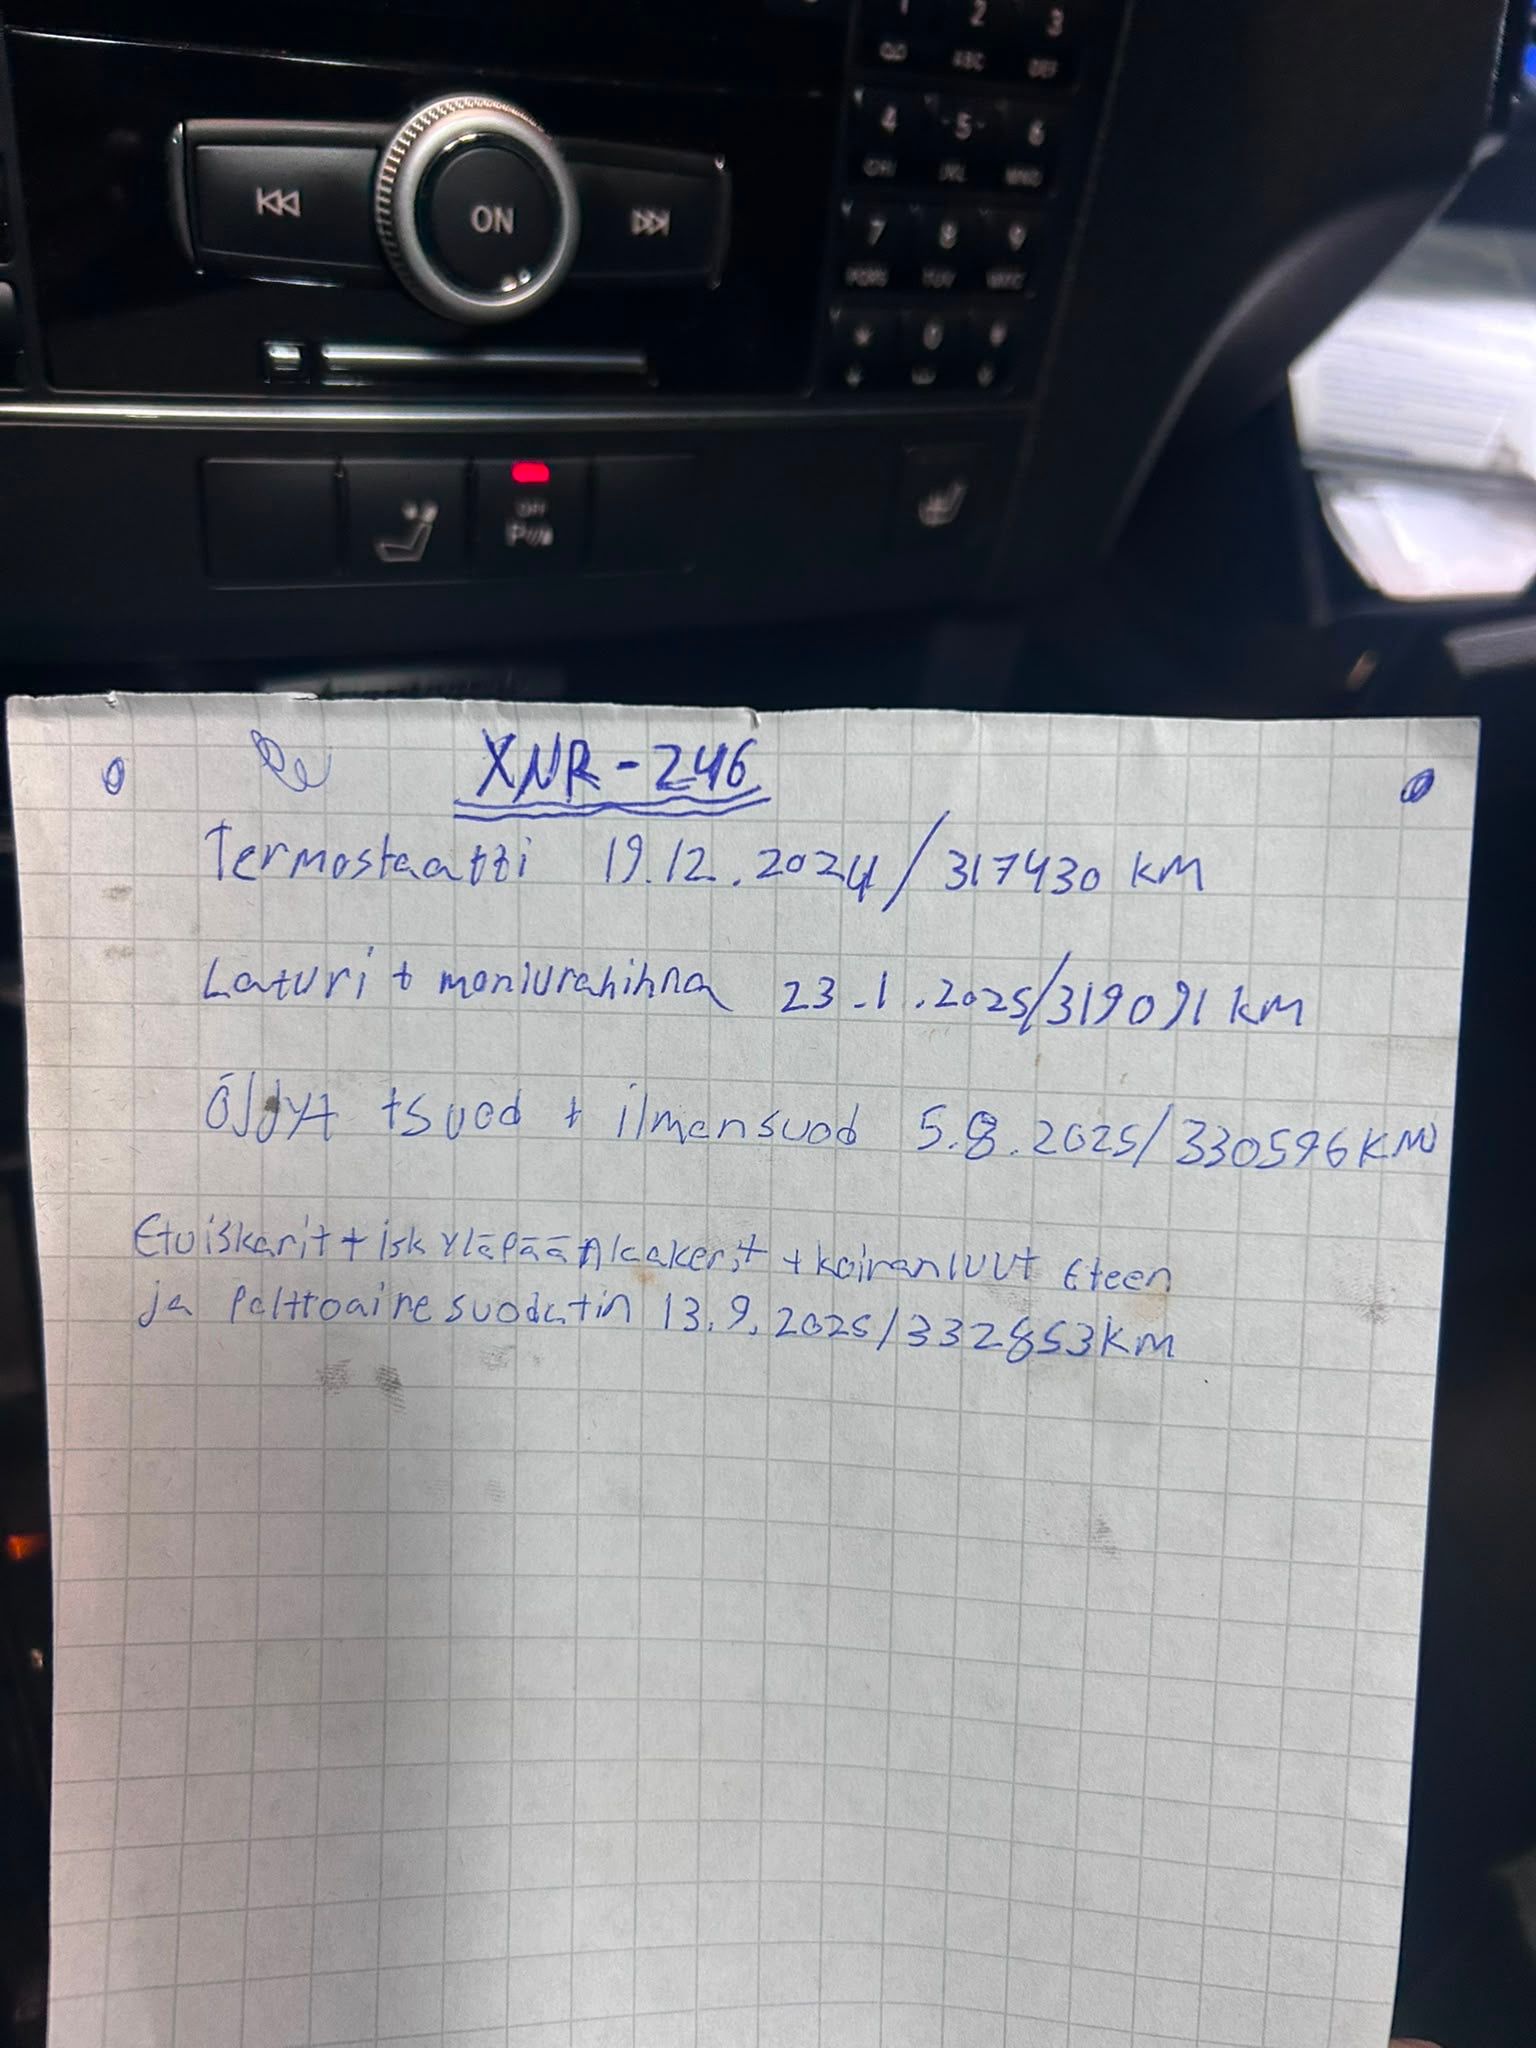 1 2 3
ABC DEF
4 5 6
GHI JKL MNO
ON
7 8 9
PQRS TUV WXYZ
* 0 #
OFF
P
XNR-246
Termostaatti 19.12.2024/317430 KM
Laturi + moniurahihna 23.1.2025/319091 KM
Öljyt +suod + ilmansuod 5.8.2025/330596KM
Etuiskarit + isk yläpään laakerit + koiranluut Eteen
ja Polttoainesuodatin 13.9.2025/332853KM